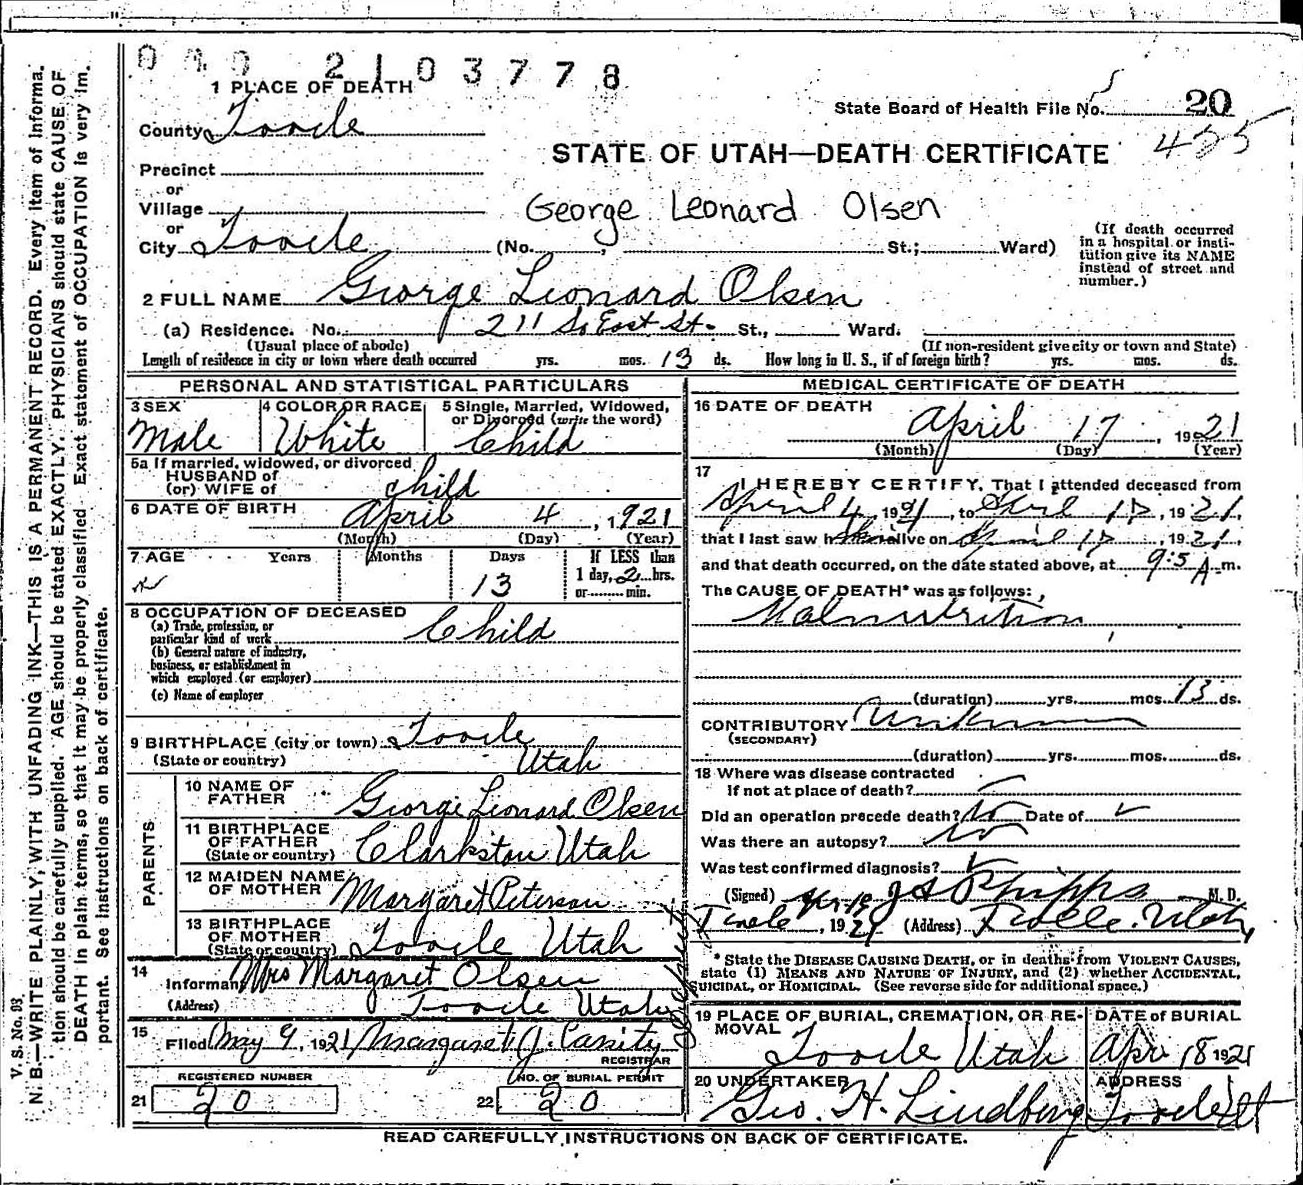 040 2103778
1 PLACE OF DEATH
State Board of Health File No. 5 20
County Tooele
STATE OF UTAH—DEATH CERTIFICATE 425
Precinct
or
Village
George Leonard Olsen
or
City Tooele (No. St.; Ward)
(If death occurred
in a hospital or insti-
tution give its NAME
instead of street and
number.)
2 FULL NAME George Leonard Olsen
(a) Residence. No. 211 So East St. St., Ward.
(Usual place of abode) (If non-resident give city or town and State)
Length of residence in city or town where death occurred yrs. mos. 13 ds. How long in U. S., if of foreign birth? yrs. mos. ds.
PERSONAL AND STATISTICAL PARTICULARS
3 SEX 4 COLOR OR RACE 5 Single, Married, Widowed,
or Divorced (write the word)
Male White Child
5a If married, widowed, or divorced
HUSBAND of
(or) WIFE of child
6 DATE OF BIRTH April 4, 1921
(Month) (Day) (Year)
7 AGE Years Months Days If LESS than
13 1 day, 2 hrs.
or min.
8 OCCUPATION OF DECEASED
(a) Trade, profession, or
particular kind of work Child
(b) General nature of industry,
business, or establishment in
which employed (or employer)
(c) Name of employer
9 BIRTHPLACE (city or town) Tooele
(State or country) Utah
PARENTS
10 NAME OF
FATHER George Leonard Olsen
11 BIRTHPLACE
OF FATHER
(State or country) Clarkston Utah
12 MAIDEN NAME
OF MOTHER Margaret Peterson
13 BIRTHPLACE
OF MOTHER
(State or country) Tooele Utah
14
Informant Mrs Margaret Olsen
(Address) Tooele Utah
15
Filed May 9, 1921 Margaret J. Cassity
REGISTRAR
REGISTERED NUMBER NO. OF BURIAL PERMIT
21 20 22 20
MEDICAL CERTIFICATE OF DEATH
16 DATE OF DEATH
April 17, 1921
(Month) (Day) (Year)
17
I HEREBY CERTIFY, That I attended deceased from
April 4, 1921, to April 17, 1921,
that I last saw h alive on April 17, 1921,
and that death occurred, on the date stated above, at 9:5 A. m.
The CAUSE OF DEATH* was as follows:
Malnutrition
(duration) yrs. mos. 13 ds.
CONTRIBUTORY Unknown
(SECONDARY)
(duration) yrs. mos. ds.
18 Where was disease contracted
If not at place of death?
Did an operation precede death? No Date of
Was there an autopsy? No
Was test confirmed diagnosis?
(Signed) J S Phipps M. D.
Tooele, 1921 (Address) Tooele. Utah
* State the DISEASE CAUSING DEATH, or in deaths from VIOLENT CAUSES,
state (1) MEANS AND NATURE OF INJURY, and (2) whether ACCIDENTAL,
SUICIDAL, or HOMICIDAL. (See reverse side for additional space.)
19 PLACE OF BURIAL, CREMATION, OR RE-
MOVAL Tooele Utah
DATE of BURIAL
Apr 18 1921
20 UNDERTAKER ADDRESS
Geo. H. Lindberg Tooele Ut
READ CAREFULLY INSTRUCTIONS ON BACK OF CERTIFICATE.
V. S. No. 93
N. B.—WRITE PLAINLY, WITH UNFADING INK—THIS IS A PERMANENT RECORD. Every item of informa-
tion should be carefully supplied. AGE should be stated EXACTLY. PHYSICIANS should state CAUSE OF
DEATH in plain terms, so that it may be properly classified. Exact statement of OCCUPATION is very im-
portant. See instructions on back of certificate.